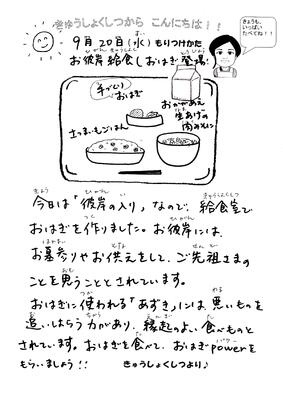 きゅうしょくしつから こんにちは!!
きょうも、
いっぱい
たべてね!!
9月20日(水)もりつけかた
お彼岸給食(おはぎ登場)
手づくり
おはぎ
おかかあえ
生あげの
肉みそに
さつまいもごはん
今日は「彼岸の入り」なので、給食室で
おはぎを作りました。お彼岸には、
お墓参りやお供えをして、ご先祖さまの
ことを思うこととされています。
おはぎに使われる「あずき」には、悪いものを
追いはらう力があり、縁起のよい食べものと
されています。おはぎを食べて、おはぎpowerを
もらいましょう!!
きゅうしょくしつより♪